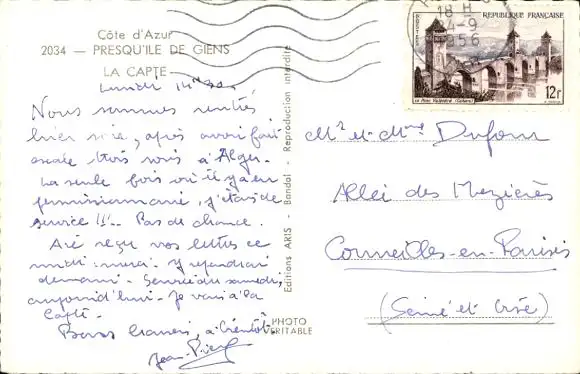 Côte d'Azur
2034 — PRESQU'ILE DE GIENS
LA CAPTE
Lundi
Nous sommes rentrés
hier soir, après avoir fait
escale trois nuits à Alger.
La seule fois où il y a eu
permission, j'étais de
service !!!.. Pas de chance.
Ai reçu vos lettres ce
midi, merci. J'y répondrai
demain. Service du samedi,
aujourd'hui. Je vais à la
Capte.
Bons baisers, à bientôt,
Jean-Pierre
Editions ARIS - Bandol - Reproduction interdite
PHOTO
VERITABLE
18 H
4-9
1956
POSTES
REPUBLIQUE FRANÇAISE
Le Pont Valentré (Cahors)
12f
Mr et Mme Dufour
Allée des Mézières
Cormeilles-en-Parisis
(Seine et Oise)